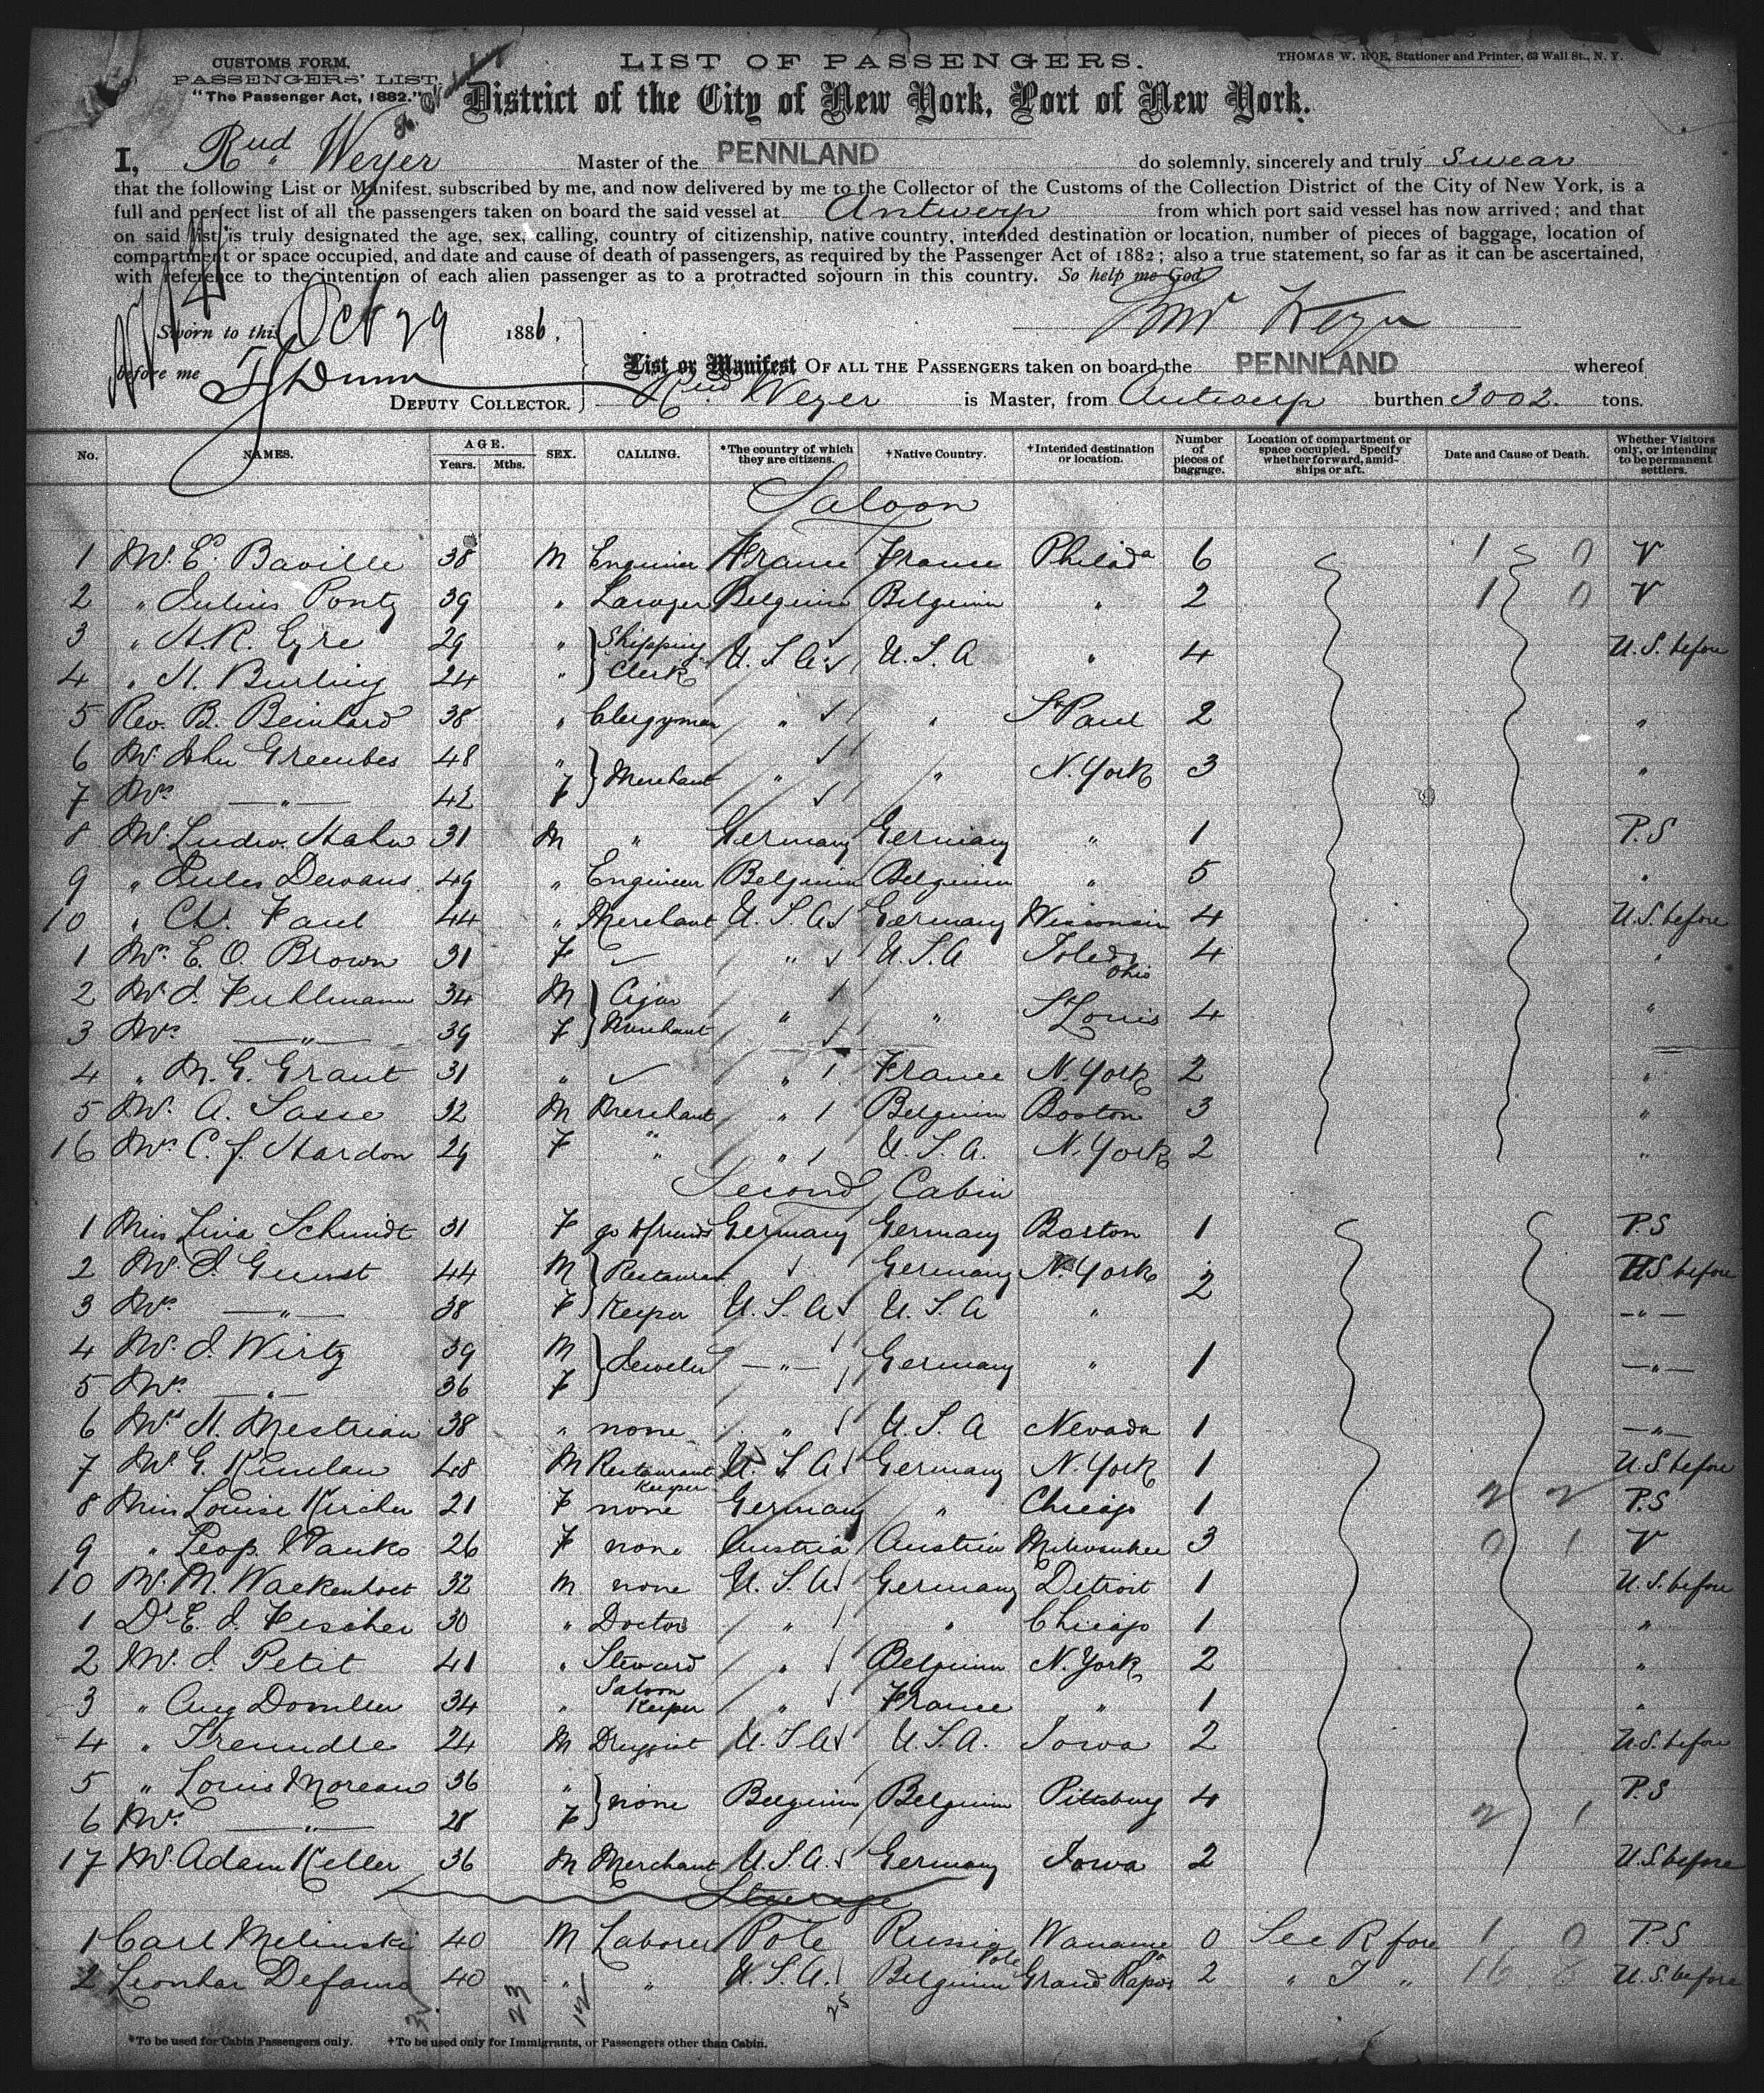 CUSTOMS FORM.
PASSENGERS' LIST.
"The Passenger Act, 1882."
LIST OF PASSENGERS.
THOMAS W. ROE, Stationer and Printer, 63 Wall St., N. Y.
District of the City of New York, Port of New York.
I, Rud. Weyer Master of the PENNLAND do solemnly, sincerely and truly swear
that the following List or Manifest, subscribed by me, and now delivered by me to the Collector of the Customs of the Collection District of the City of New York, is a
full and perfect list of all the passengers taken on board the said vessel at Antwerp from which port said vessel has now arrived; and that
on said list is truly designated the age, sex, calling, country of citizenship, native country, intended destination or location, number of pieces of baggage, location of
compartment or space occupied, and date and cause of death of passengers, as required by the Passenger Act of 1882; also a true statement, so far as it can be ascertained,
with reference to the intention of each alien passenger as to a protracted sojourn in this country. So help me God
Rud Weyer
Sworn to this Oct 29 1886.
before me Dunn
DEPUTY COLLECTOR.
List or Manifest OF ALL THE PASSENGERS taken on board the PENNLAND whereof
Rud. Weyer is Master, from Antwerp burthen 3002. tons.
No. NAMES. AGE. Years. Mths. SEX. CALLING. *The country of which they are citizens. †Native Country. †Intended destination or location. Number of pieces of baggage. Location of compartment or space occupied. Specify whether forward, amidships or aft. Date and Cause of Death. Whether Visitors only, or intending to be permanent settlers.
Saloon
1 Mr. E. Baville 38 M Engineer France France Philada 6 1 0 V
2 " Julius Ponty 39 " Lawyer Belgium Belgium " 2 1 0 V
3 " H. R. Eyre 29 " Shipping U.S.A. U.S.A " 4 U.S. before
4 " H. Burling 24 " Clerk
5 Rev. B. Beinhard 38 " Clergyman " " St Paul 2 "
6 Mr. John Greenbes 48 " Merchant " " N. York 3 "
7 Mrs —"— 42 F
8 Mr. Ludw. Hahn 31 M " Germany Germany " 1 P.S
9 " Jules Dewans 49 " Engineer Belgium Belgium " 5 "
10 " Ch. Faul 44 " Merchant U.S.A Germany Wisconsin 4 U.S. before
1 Mrs. E. O. Brown 31 F " U.S.A Toledo Ohio 4 "
2 Mr J. Fuhlmann 34 M Cigar " " St Louis 4 "
3 Mrs —"— 39 F Merchant
4 " M. G. Grant 31 " " France N. York 2 "
5 Mr. A. Sasse 32 M Merchant " Belgium Boston 3 "
16 Mrs C. J. Hardon 29 F " " U.S.A. N. York 2 "
Second Cabin
1 Miss Lina Schmidt 31 F go to friends Germany Germany Boston 1 P.S
2 Mr. J. Gunst 44 M Restaurant Germany N. York 2 U.S before
3 Mrs —"— 38 F Keeper U.S.A U.S.A " —"—
4 Mr. J. Wirtz 39 M Jeweler —"— Germany " 1 —"—
5 Mrs. —"— 36 F
6 Mrs H. Mestrian 38 " none " U.S.A Nevada 1 —"—
7 Mr G. Kinlau 48 M Restaurant Keeper U.S.A Germany N. York 1 U.S. before
8 Miss Louise Kircher 21 F none Germany " Chicago 1 2 2 P.S
9 " Leop. Wanko 26 F none Austria Austria Milwaukee 3 0 1 V
10 Mr. M. Wackenhoet 32 M none U.S.A Germany Detroit 1 U.S. before
1 Dr E. J. Fischer 30 " Doctor " " Chicago 1 "
2 Mr. J. Petit 41 " Steward " Belgium N. York 2 "
3 " Aug Domller 34 " Saloon Keeper " France " 1 "
4 " Freundle 24 M Druggist U.S.A U.S.A. Iowa 2 U.S. before
5 " Louis Moreau 36 " none Belgium Belgium Pittsburg 4 P.S
6 Mrs —"— 28 F 2 1
17 Mr. Adam Keller 36 M Merchant U.S.A. Germany Iowa 2 U.S before
Steerage
1 Carl Melinski 40 M Laborer Pole Russia Pole Wanamie Pa 0 See R fore 1 0 P.S
2 Leonhar Defams 40 " " U.S.A. Belgium Grand Rapds 2 " J " 16 U.S. before
23 12 25
*To be used for Cabin Passengers only. †To be used only for Immigrants, or Passengers other than Cabin.